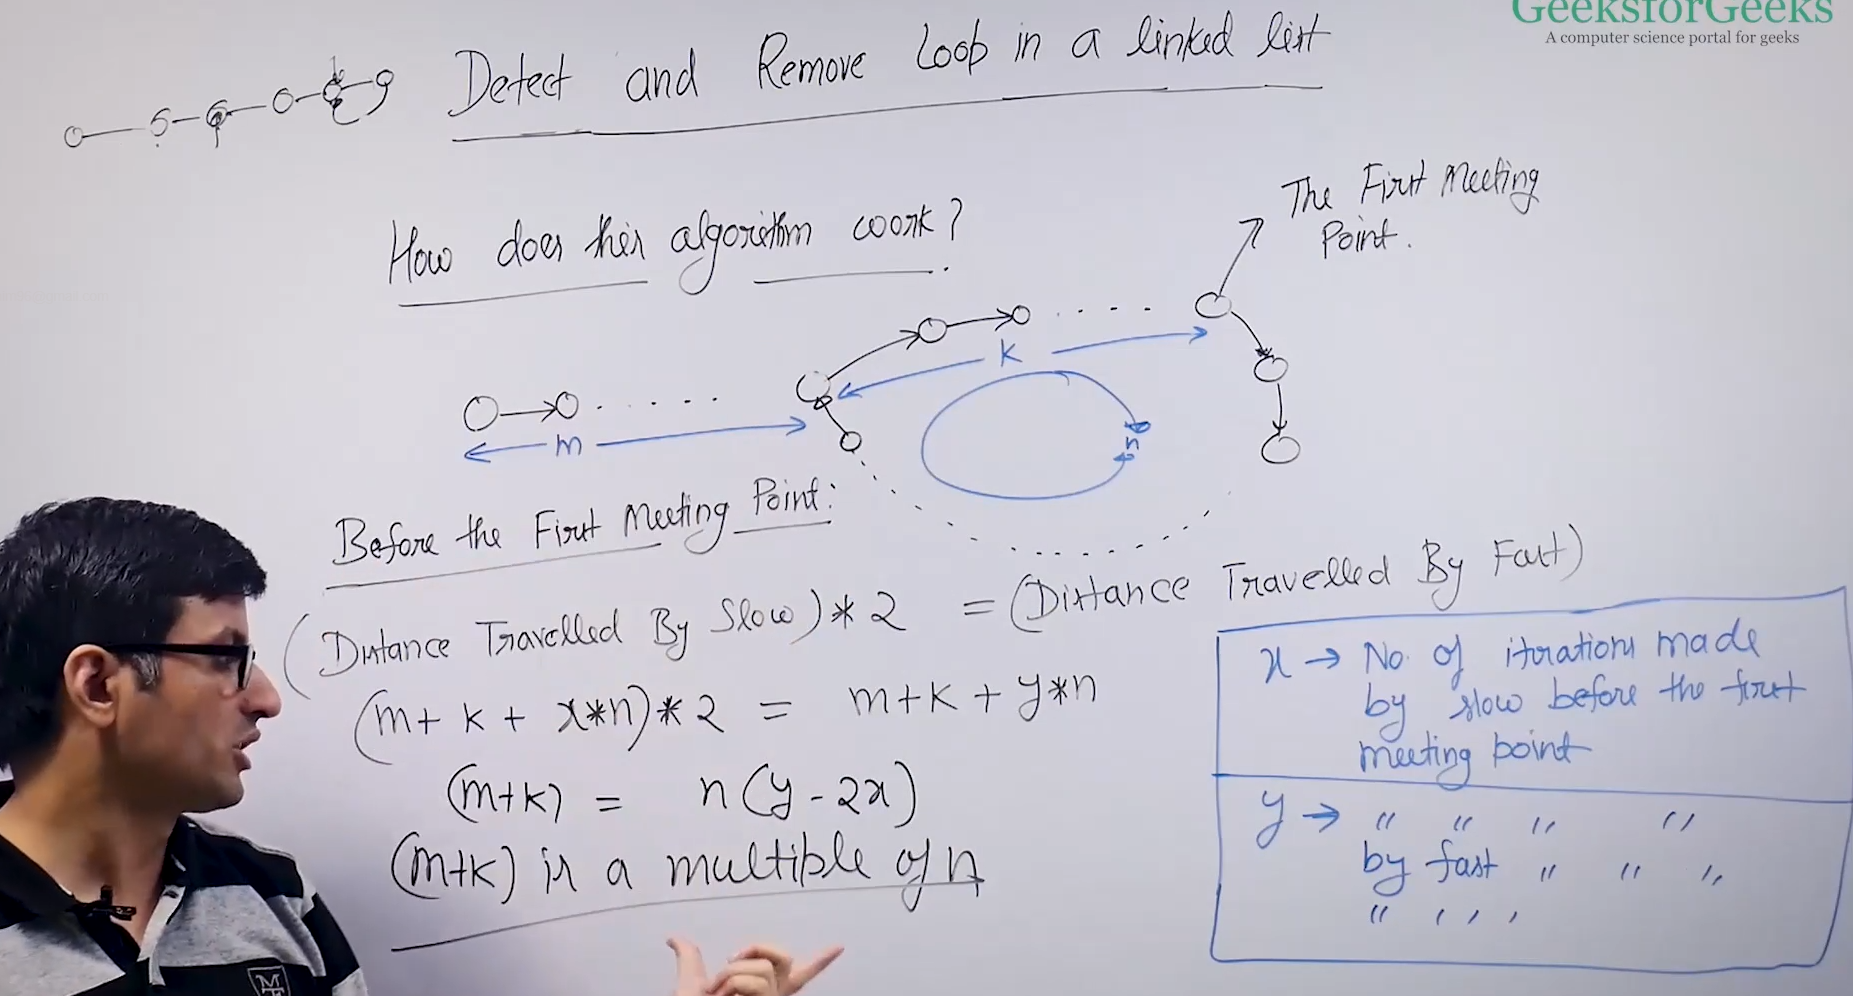 GeeksforGeeks
A computer science portal for geeks
Detect and Remove Loop in a linked list
How does this algorithm work?
The First Meeting
Point.
K
m
n
Before the First Meeting Point:
(Distance Travelled By Slow) * 2 = (Distance Travelled By Fast)
(m + k + x*n) * 2 = m + k + y*n
(m+k) = n(y - 2x)
(m+k) is a multiple of n
x → No. of iterations made
by slow before the first
meeting point
y → " " " "
by fast " " "
" " "